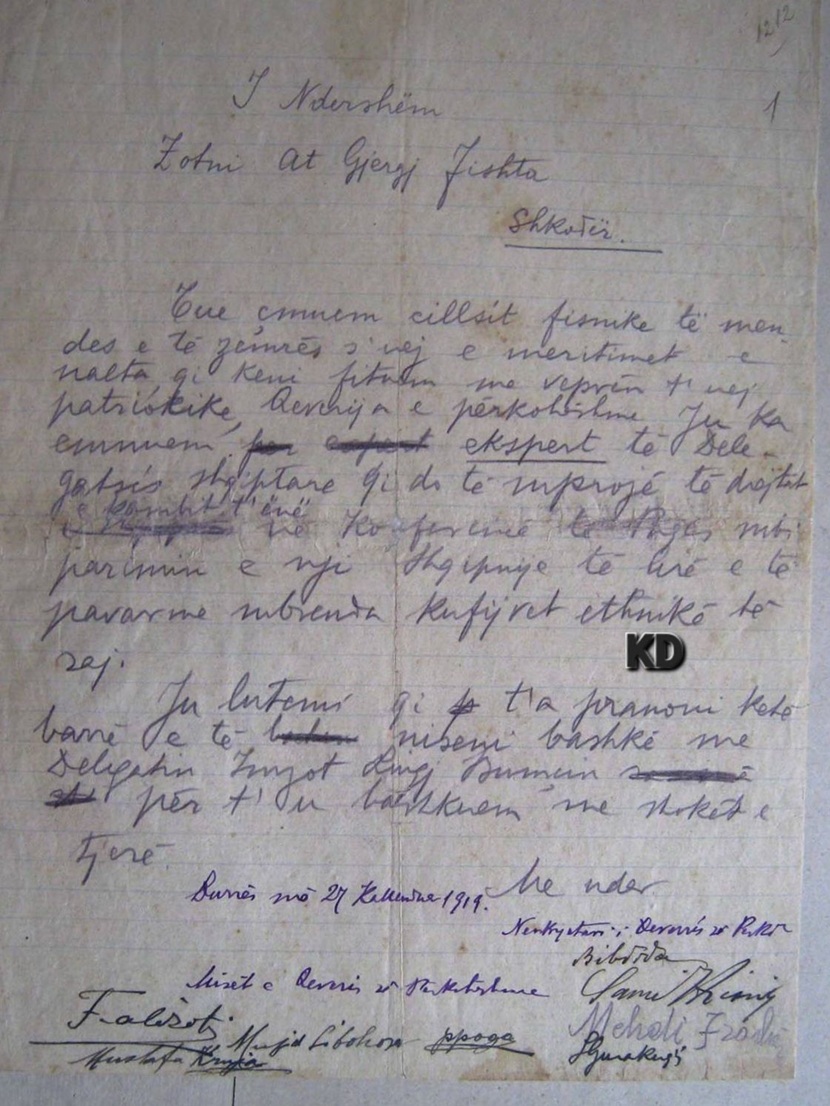 12 12
1
I Ndershëm
Zotni At Gjergj Fishta
Shkodër.
Tue çmuem cillsit fisnike të men
des e të zemrës s'uej e meritimet e
nalta qi keni fitue me veprën t'uej
patriotike, Qeverija e përkohëshme Ju ka
emnuem për expert ekspert të Dele-
gatsis shqiptare qi do të mprojë të drejtat
e kombit t'ënë
në Konferencë të Pages mbi
parimin e nji Shqipnije të lirë e të
pavarme mbrenda kufijvet ethnikë të
saj.
KD
Ju lutemi qi t'a pranoni këtë
barrë e të niseni bashkë me
Delegatin Imzot Luigj Bumçin
për t'u bashkuem me shokët e
tjerë.
Me nder
Durrës më 27 Kallnduer 1919.
Nenkryetari i Qeveris së Përk.
Bibdoda
Misët e Qeveris së Përkohëshme
Sami
Mehdi Frashëri
Mustafa Kruja Mufid Libohova ppoga
LGurakuqi